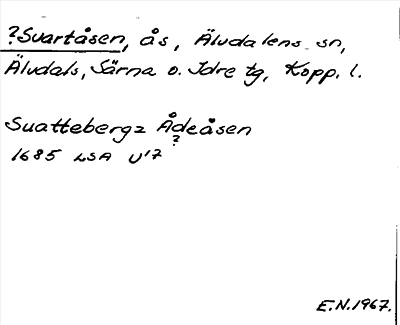 ?Svartåsen, ås, Äludalens sn,
Äludals, Särna o. Idre tg, Kopp. l.
Suattebergz Ådeåsen
?
1685 LSA U'7
E.N.1967.